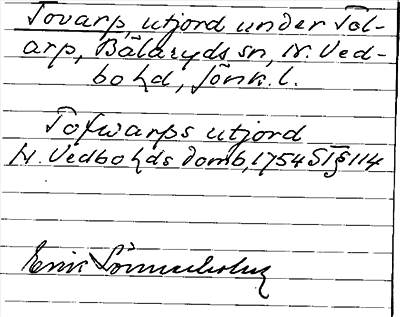 Tovarp utjord under Tol-
arp, Bälaryds sn, N. Ved-
bo hd, Jönk. l.
Tofwarps utjord
N. Vedbo hds domb, 1754 ST § 114
Erik